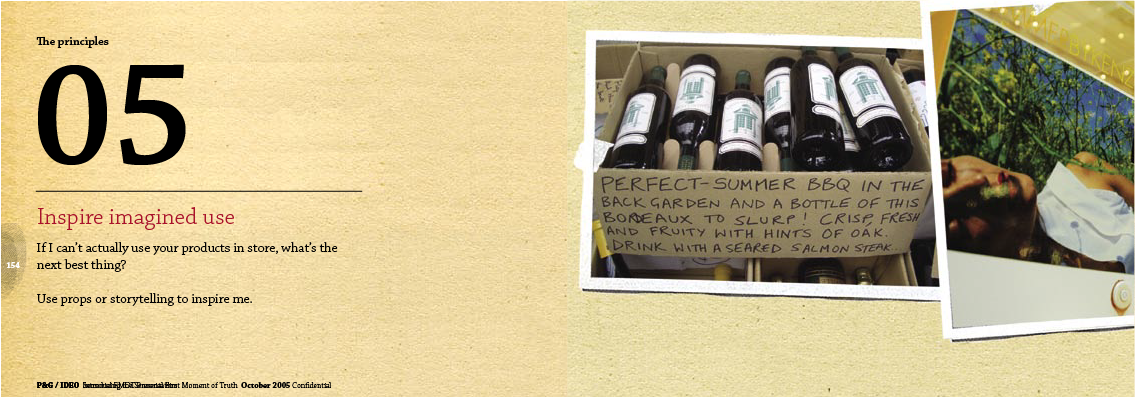 The principles
05
Inspire imagined use
If I can't actually use your products in store, what's the
next best thing?
Use props or storytelling to inspire me.
154
P&G / IDEO
Moment of Truth October 2005 Confidential
PERFECT-SUMMER BBQ IN THE
BACK GARDEN AND A BOTTLE OF THIS
BORDEAUX TO SLURP! CRISP, FRESH
AND FRUITY WITH HINTS OF OAK.
DRINK WITH A SEARED SALMON STEAK...